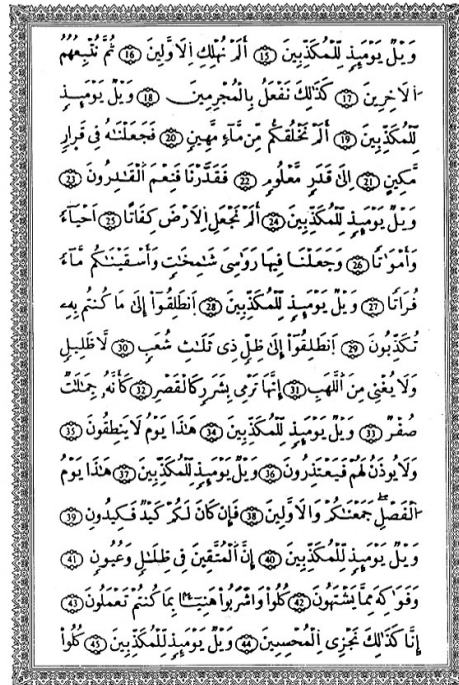 وَيْلٌ يَوْمَئِذٍ لِّلْمُكَذِّبِينَ 15 أَلَمْ نُهْلِكِ اِلَاوَّلِينَ 16 ثُمَّ نُتْبِعُهُمُ
اُلَاخِرِينَ 17 كَذَٰلِكَ نَفْعَلُ بِالْمُجْرِمِينَ 18 وَيْلٌ يَوْمَئِذٍ
لِّلْمُكَذِّبِينَ 19 أَلَمْ نَخْلُقكُّم مِّن مَّآءٍ مَّهِينٍ 20 فَجَعَلْنَٰهُ فِي قَرَارٍ
مَّكِينٍ 21 إِلَىٰ قَدَرٍ مَّعْلُومٍ 22 فَقَدَّرْنَا فَنِعْمَ اَلْقَٰدِرُونَ 23
وَيْلٌ يَوْمَئِذٍ لِّلْمُكَذِّبِينَ 24 أَلَمْ نَجْعَلِ اِلَارْضَ كِفَاتًا 25 اَحْيَآءً
وَأَمْوَٰتًا 26 وَجَعَلْنَا فِيهَا رَوَٰسِيَ شَٰمِخَٰتٍ وَأَسْقَيْنَٰكُم مَّآءً
فُرَاتًا 27 وَيْلٌ يَوْمَئِذٍ لِّلْمُكَذِّبِينَ 28 اَنطَلِقُوٓاْ إِلَىٰ مَا كُنتُم بِهِۦ
تُكَذِّبُونَ 29 اَنطَلِقُوٓاْ إِلَىٰ ظِلٍّ ذِي ثَلَٰثِ شُعَبٍ 30 لَّا ظَلِيلٍ
وَلَا يُغْنِي مِنَ اَللَّهَبِ 31 إِنَّهَا تَرْمِي بِشَرَرٍ كَالْقَصْرِ 32 كَأَنَّهُۥ جِمَٰلَٰتٌ
صُفْرٌ 33 وَيْلٌ يَوْمَئِذٍ لِّلْمُكَذِّبِينَ 34 هَٰذَا يَوْمُ لَا يَنطِقُونَ 35
وَلَا يُوذَنُ لَهُمْ فَيَعْتَذِرُونَ 36 وَيْلٌ يَوْمَئِذٍ لِّلْمُكَذِّبِينَ 37 هَٰذَا يَوْمُ
اُلْفَصْلِۖ جَمَعْنَٰكُمْ وَالَاوَّلِينَ 38 فَإِن كَانَ لَكُمْ كَيْدٌ فَكِيدُونِ 39
وَيْلٌ يَوْمَئِذٍ لِّلْمُكَذِّبِينَ 40 إِنَّ اَلْمُتَّقِينَ فِي ظِلَٰلٍ وَعُيُونٍ 41
وَفَوَٰكِهَ مِمَّا يَشْتَهُونَ 42 كُلُواْ وَاشْرَبُواْ هَنِيٓـًٔا بِمَا كُنتُمْ تَعْمَلُونَ 43
إِنَّا كَذَٰلِكَ نَجْزِي اِلْمُحْسِنِينَ 44 وَيْلٌ يَوْمَئِذٍ لِّلْمُكَذِّبِينَ 45 كُلُواْ